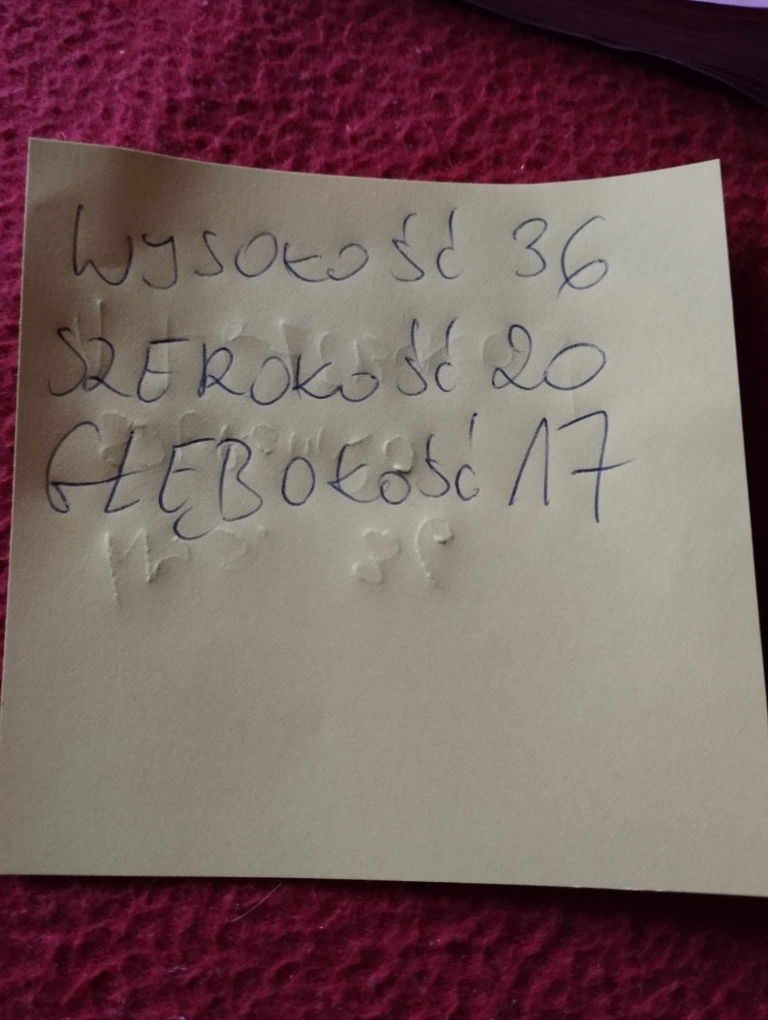 WYSOKOŚĆ 36
SZEROKOŚĆ 20
GŁĘBOKOŚĆ 17